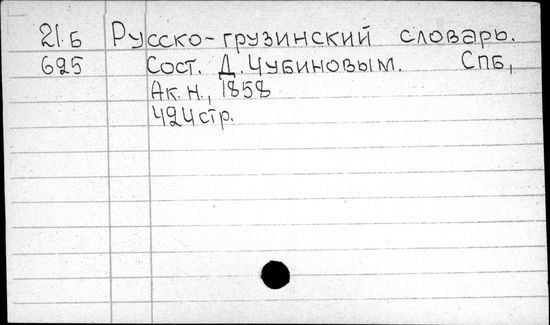 21.Б Русско-грузинский словарь.
625 Сост. Д. Чубиновым. СПБ,
Ак. н., 1858
424 стр.